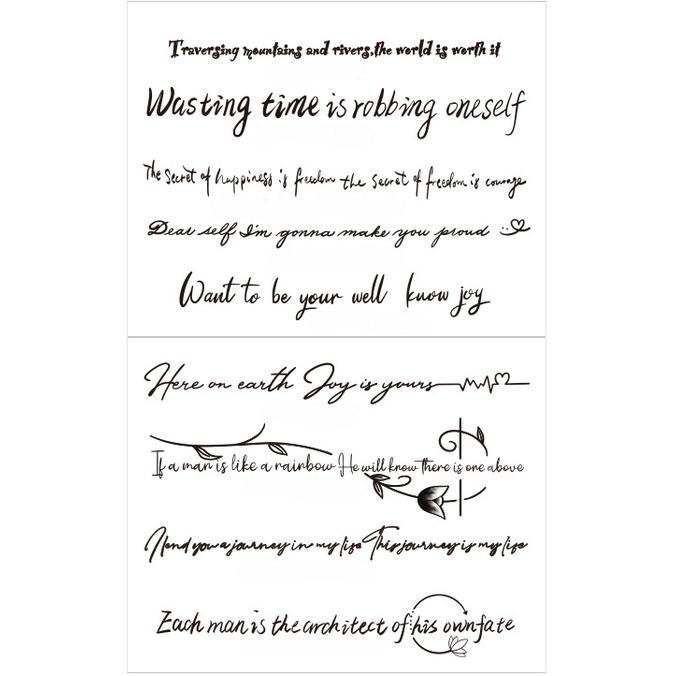 Traversing mountains and rivers,the world is worth it
Wasting time is robbing oneself
The secret of happiness is freedom the secret of freedom is courage
Dear self I'm gonna make you proud
Want to be your well know joy
Here on earth Joy is yours
If a man is like a rainbow He will know There is one above
I lend you a journey in my life This journey is my life
Each man is the architect of his own fate